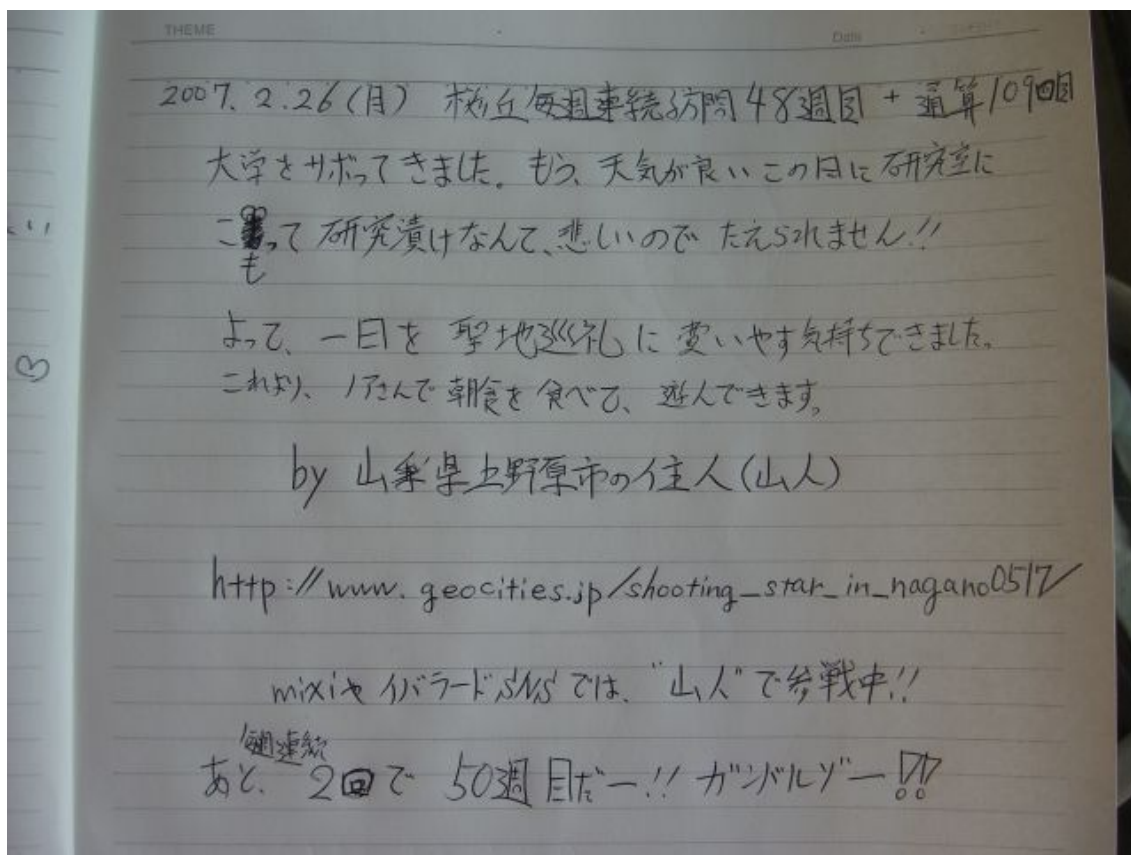 THEME
Date
2007.2.26(月) 杉丘毎週連続訪問48週目 + 通算109回目
大学をサボってきました。もう、天気が良いこの日に研究室に
こもって研究漬けなんて、悲しいのでたえられません!!
よって、一日を聖地巡礼に費いやす気持ちできました。
これより、ノアさんで朝食を食べて、遊んできます。
by 山梨県上野原市の住人(山人)
http://www.geocities.jp/shooting_star_in_nagano0517/
mixiやイバラードSNSでは、"山人"で参戦中!!
あと、毎週連続2回で50週目だー!! ガンバルゾー!!